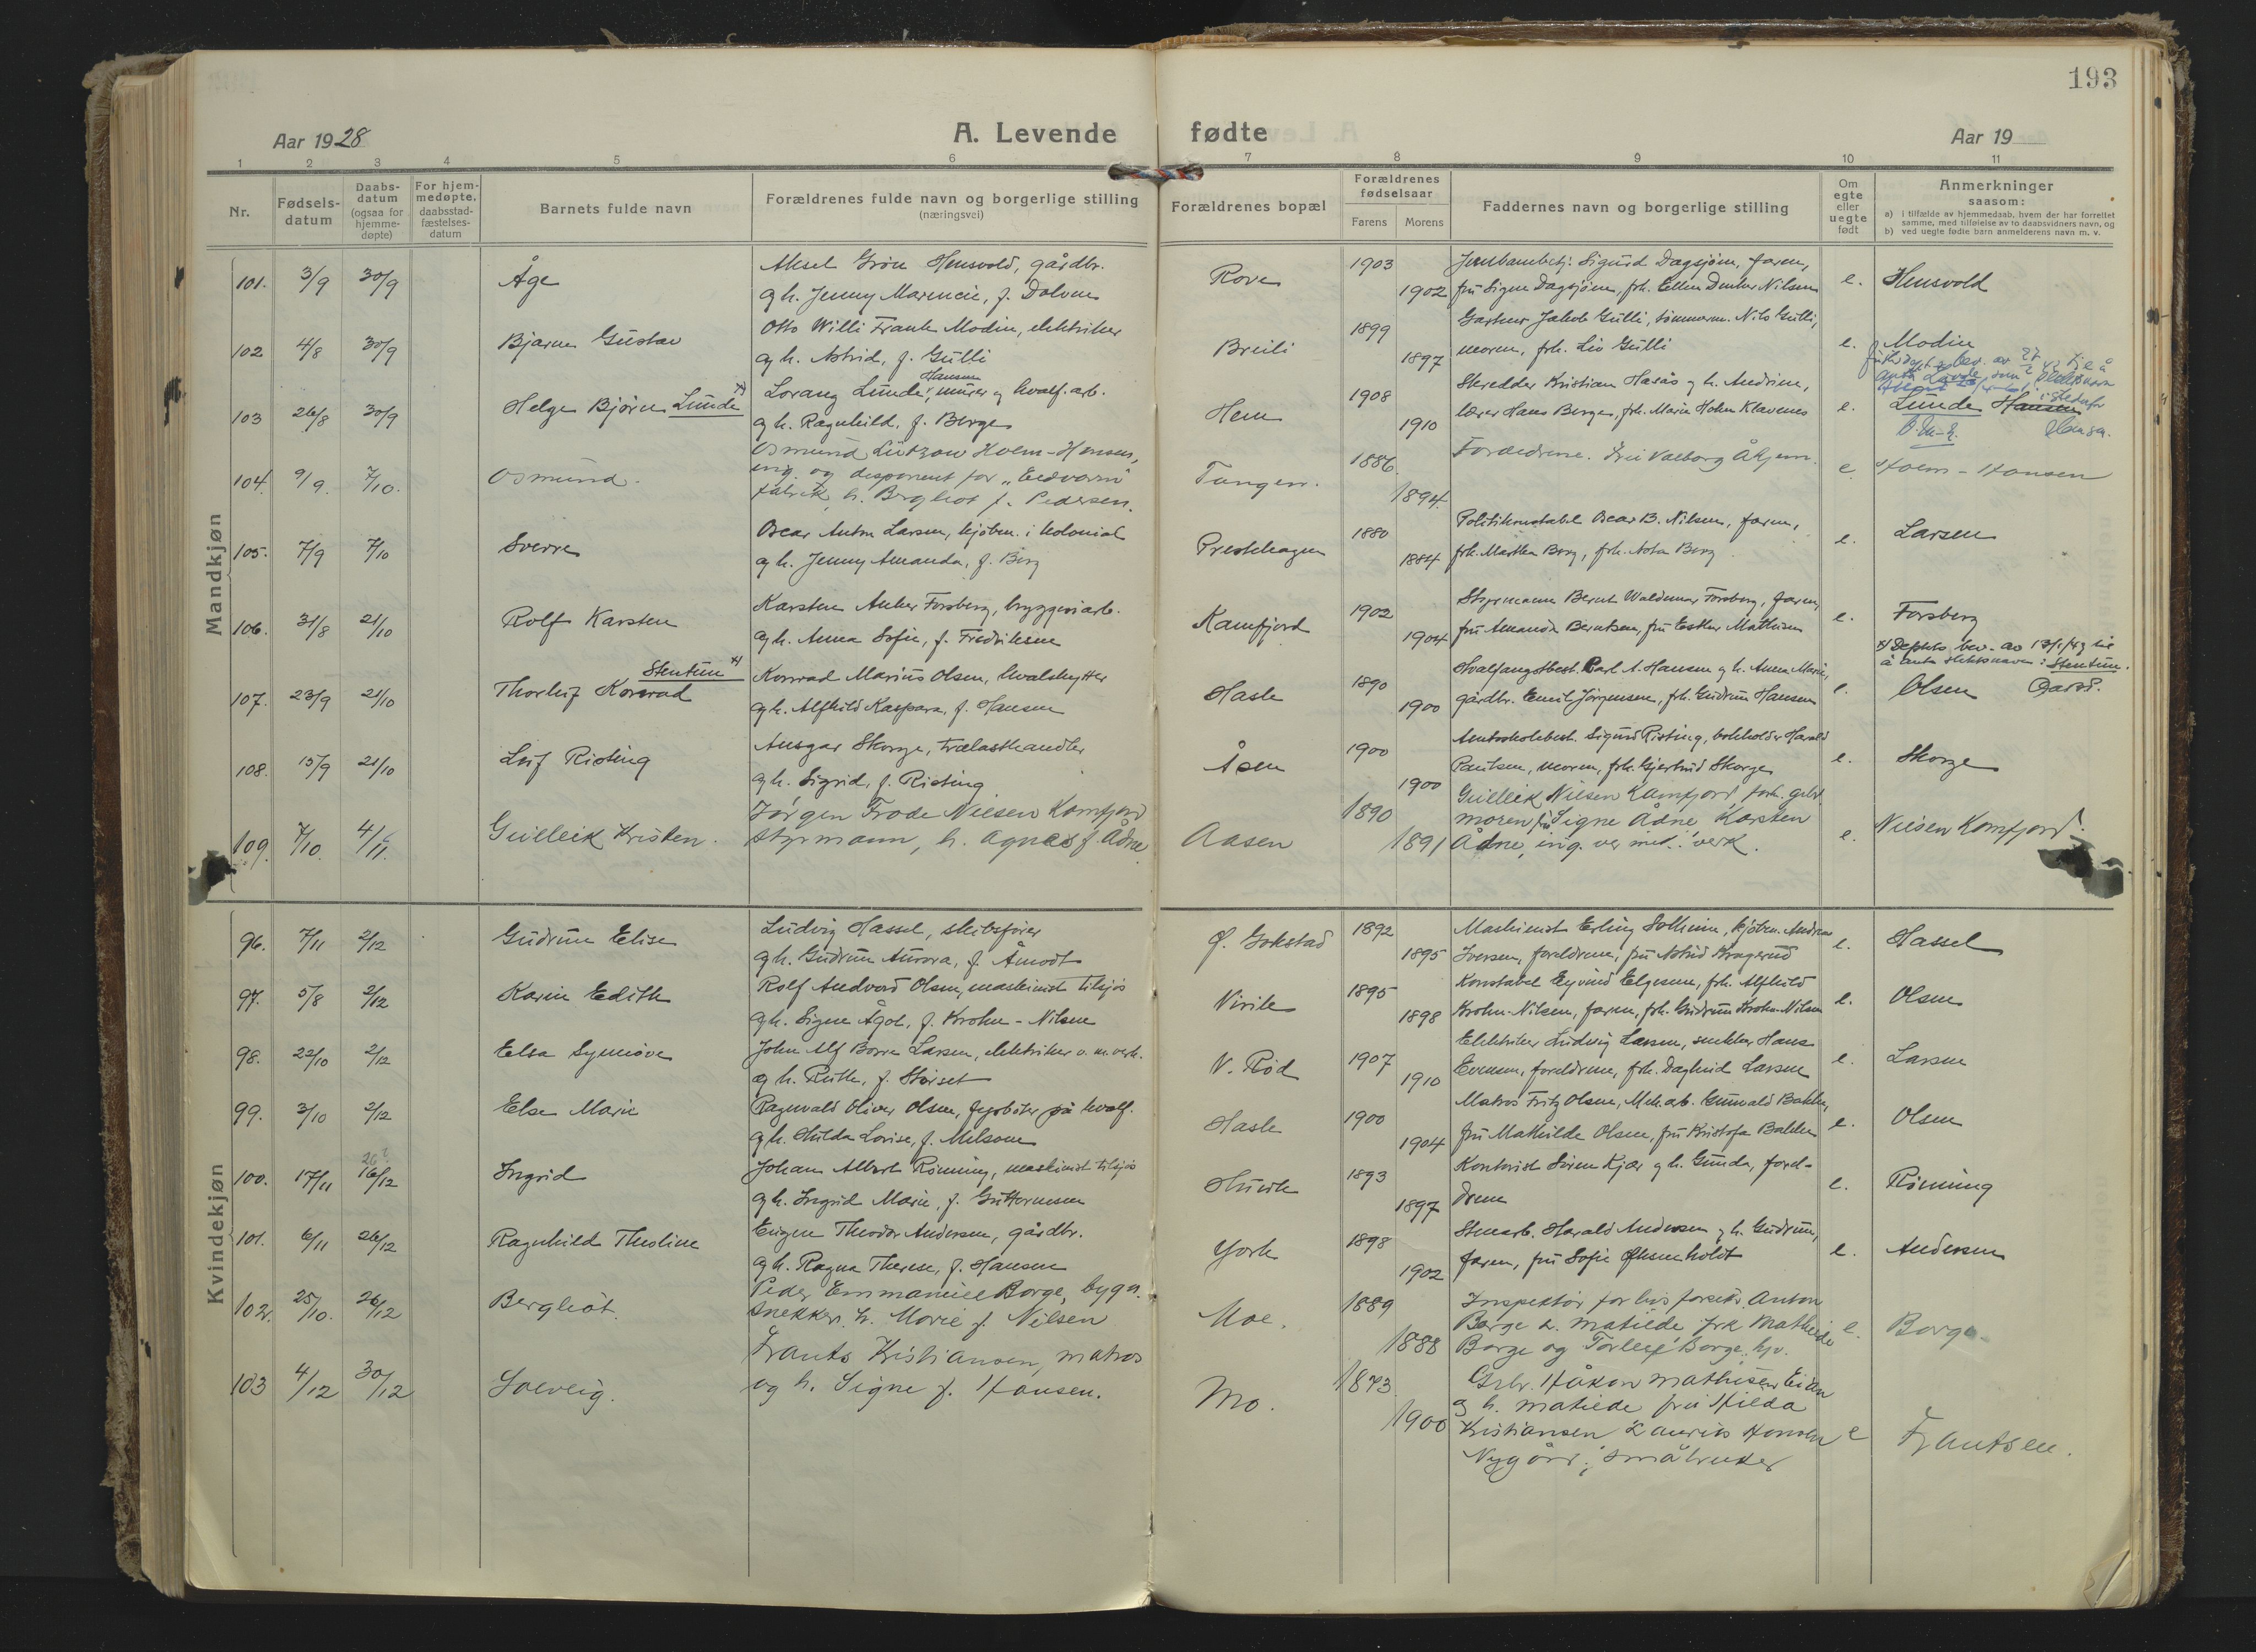 193
Aar 1928
A. Levende fødte
Aar 19
1 2 3 4 5 6 7 8 9 10 11
Nr.
Fødsels-
datum
Daabs-
datum
(ogsaa for
hjemme-
døpte)
For hjem-
medøpte,
daabsstad-
fæstelses-
datum
Barnets fulde navn
Forældrenes fulde navn og borgerlige stilling
(næringsvei)
Forældrenes bopæl
Forældrenes
fødselsaar
Farens Morens
Faddernes navn og borgerlige stilling
Om
egte
eller
uegte
født
Anmerkninger
saasom:
a) i tilfælde av hjemmedaab, hvem der har forrettet
samme, med tilføielse av to daabsvidners navn, og
b) ved uegte fødte barn anmelderens navn m. v.
Mandkjøn
101. 3/9 30/9 Åge
Aksel Grøn Hensvold, gårdbr.
og h. Jenny Marencie, f. Dalven
Rove 1903 1902
Sigurd Dagsjøen, faren,
fru Signe Dagsjøen, frk. Ellen Nilsen
e. Hensvold
102 4/8 30/9 Bjarne Gustav
Otto Willi Frank Modin, elektriker
og h. Astrid, f. Gulli
Breili 1899 1897
Gartner Jakob Gulli, tømmerm. Nils Gulli,
moren, frk. Liv Gulli
e. Modin
103 26/8 30/9 Helge Bjørn Lunde x)
Hansen
Lorang Lunde, murer og hvalf. arb.
og h. Ragnhild, f. Berge
Hem 1908 1910
Skredder Kristian Hasås og h. Andrine,
lærer Hans Berge, frk. Marie Holm Klavenes
e. Lunde Hansen
104. 9/9. 7/10. Osmund.
Osmund Lützow Holm-Hansen,
ing. og disponent for
fabrik, h. Bergliot f. Pedersen.
Tangen. 1886. 1894.
Forældrene. Frü Valborg Åkjem.
e. Holm-Hansen
105. 7/9 7/10 Sverre
Oscar Anton Larsen, kjøbm. i kolonial
og h. Jenny Amanda, f. Berg
Prestehagen 1880 1884
Politikonstabel Oscar B. Nilsen, faren,
frk. Martha Berg, frk. Asta Berg
e. Larsen
106. 31/8 21/10 Rolf Karsten
Karsten Anker Forsberg, bryggeriarb.
og h. Anna Sofie, f. Fredriksen
Kamfjord 1902 1904
Styrmann Bernt Waldemar Forsberg, faren,
fru Amanda Berntsen, fru Esther Mathisen
e. Forsberg
107. 23/9 21/10 Thorleif Konrad Stentun x)
Konrad Marius Olsen, hvalskytter
og h. Alfhild Kaspara, f. Hansen
Hasle 1890 1900
Hvalfangstbest. Carl A. Hansen og h. Anna Marie,
gårdbr. Emil Jørgensen, frk. Gudrun Hansen
e. Olsen
x) Deptets bev. av
å anta slektsnavn: Stentun.
108. 15/9 21/10 Leif Risting
Ansgar Skorge, trælasthandler
og h. Sigrid, f. Risting
Åsen 1900 1900
Amtsskolebest. Sigurd Risting, bokholder Harald
Paulsen, moren, frk. Gjertrud Skorge
e. Skorge
109. 7/10. 4/11. Gulleik Kristen.
Jørgen Frode Nilsen Kamfjord
styrmann, h. Agnes f. Ådne
Aasen 1890 1891
Gulleik Nilsen Kamfjord,
moren frü Signe Ådne Karsten
Ådne, ing. ver med. verk.
e. Nilsen Kamfjord.
Kvindekjøn
96. 7/11 2/12 Gudrun Elise
Ludvig Hassel, skibsfører
og h. Gudrun Aurora, f. Åmodt
Ø. Gokstad 1892 1895
Maskinist Erling Solheim, kjøbm. Andreas
Iversen, foreldrene, fru Astrid Kragerud
e. Hassel
97. 5/8 2/12 Karin Edith
Rolf Andvord Olsen, maskinist tilsjøs
og h. Signe Ågot, f. Krohn-Nilsen
Virik 1895 1898
Konstabel Eyvind Elgesem, frk. Alfhild
Krohn-Nilsen, faren, frk. Gudrun Krohn-Nilsen
e. Olsen
98. 22/10 2/12 Elsa Synnøve
John Alf Borre Larsen, elektriker v. m. verk.
og h. Ruth, f. Størset
V. Rød 1907 1910
Elektriker Ludvig Larsen, snekker Hans
Evensen, foreldrene, frk. Dagheid Larsen
e. Larsen
99. 3/10 2/12 Else Marie
Ragnvald Oliver Olsen, fyrbøter på hvalf.
og h. Hulda Lovise, f. Melsom
Hasle 1900 1904
Matros Fritz Olsen, Mek. arb. Gunvald Bakken,
fru Mathilde Olsen, fru Kristofa Bakken
e. Olsen
100. 17/11 16/12 26? Ingrid
Johan Albert Rønning, maskinist tilsjøs
og h. Ingrid Marie, f. Guttormsen
1893 1897
Kontorist Søren Kjær og h. Gunda, forel-
drene
e. Rønning
101. 6/11 26/12 Ragnhild Theoline
Eugen Theodor Andersen, gårdbr.
og h. Ragna Therese, f. Hansen
York 1898 1902
Stenarb. Harald Andersen og h. Gudrun,
faren, fru Sofie Øksenholdt
e. Andersen
102. 25/10. 26/12 Bergliot.
Peder Emmanuel Borge, bygn.
snekker. h. Marie f. Nilsen
Moe. 1889 1888
Inspektør for livsforsikr. Anton
Borge h. Matilde frk Mathilde
Borge og Torleif Borge,
e. Borge.
103 4/12 30/12 Solveig.
Frants Kristiansen, matros
og h. Signe f. Hansen.
Mo. 1893 1900
Grbr. Håkon Mathisen Eian
og h. Matilde frü Hilda
Kristiansen Laurits Hansen
Nygård; småbruker
e Frantsen.